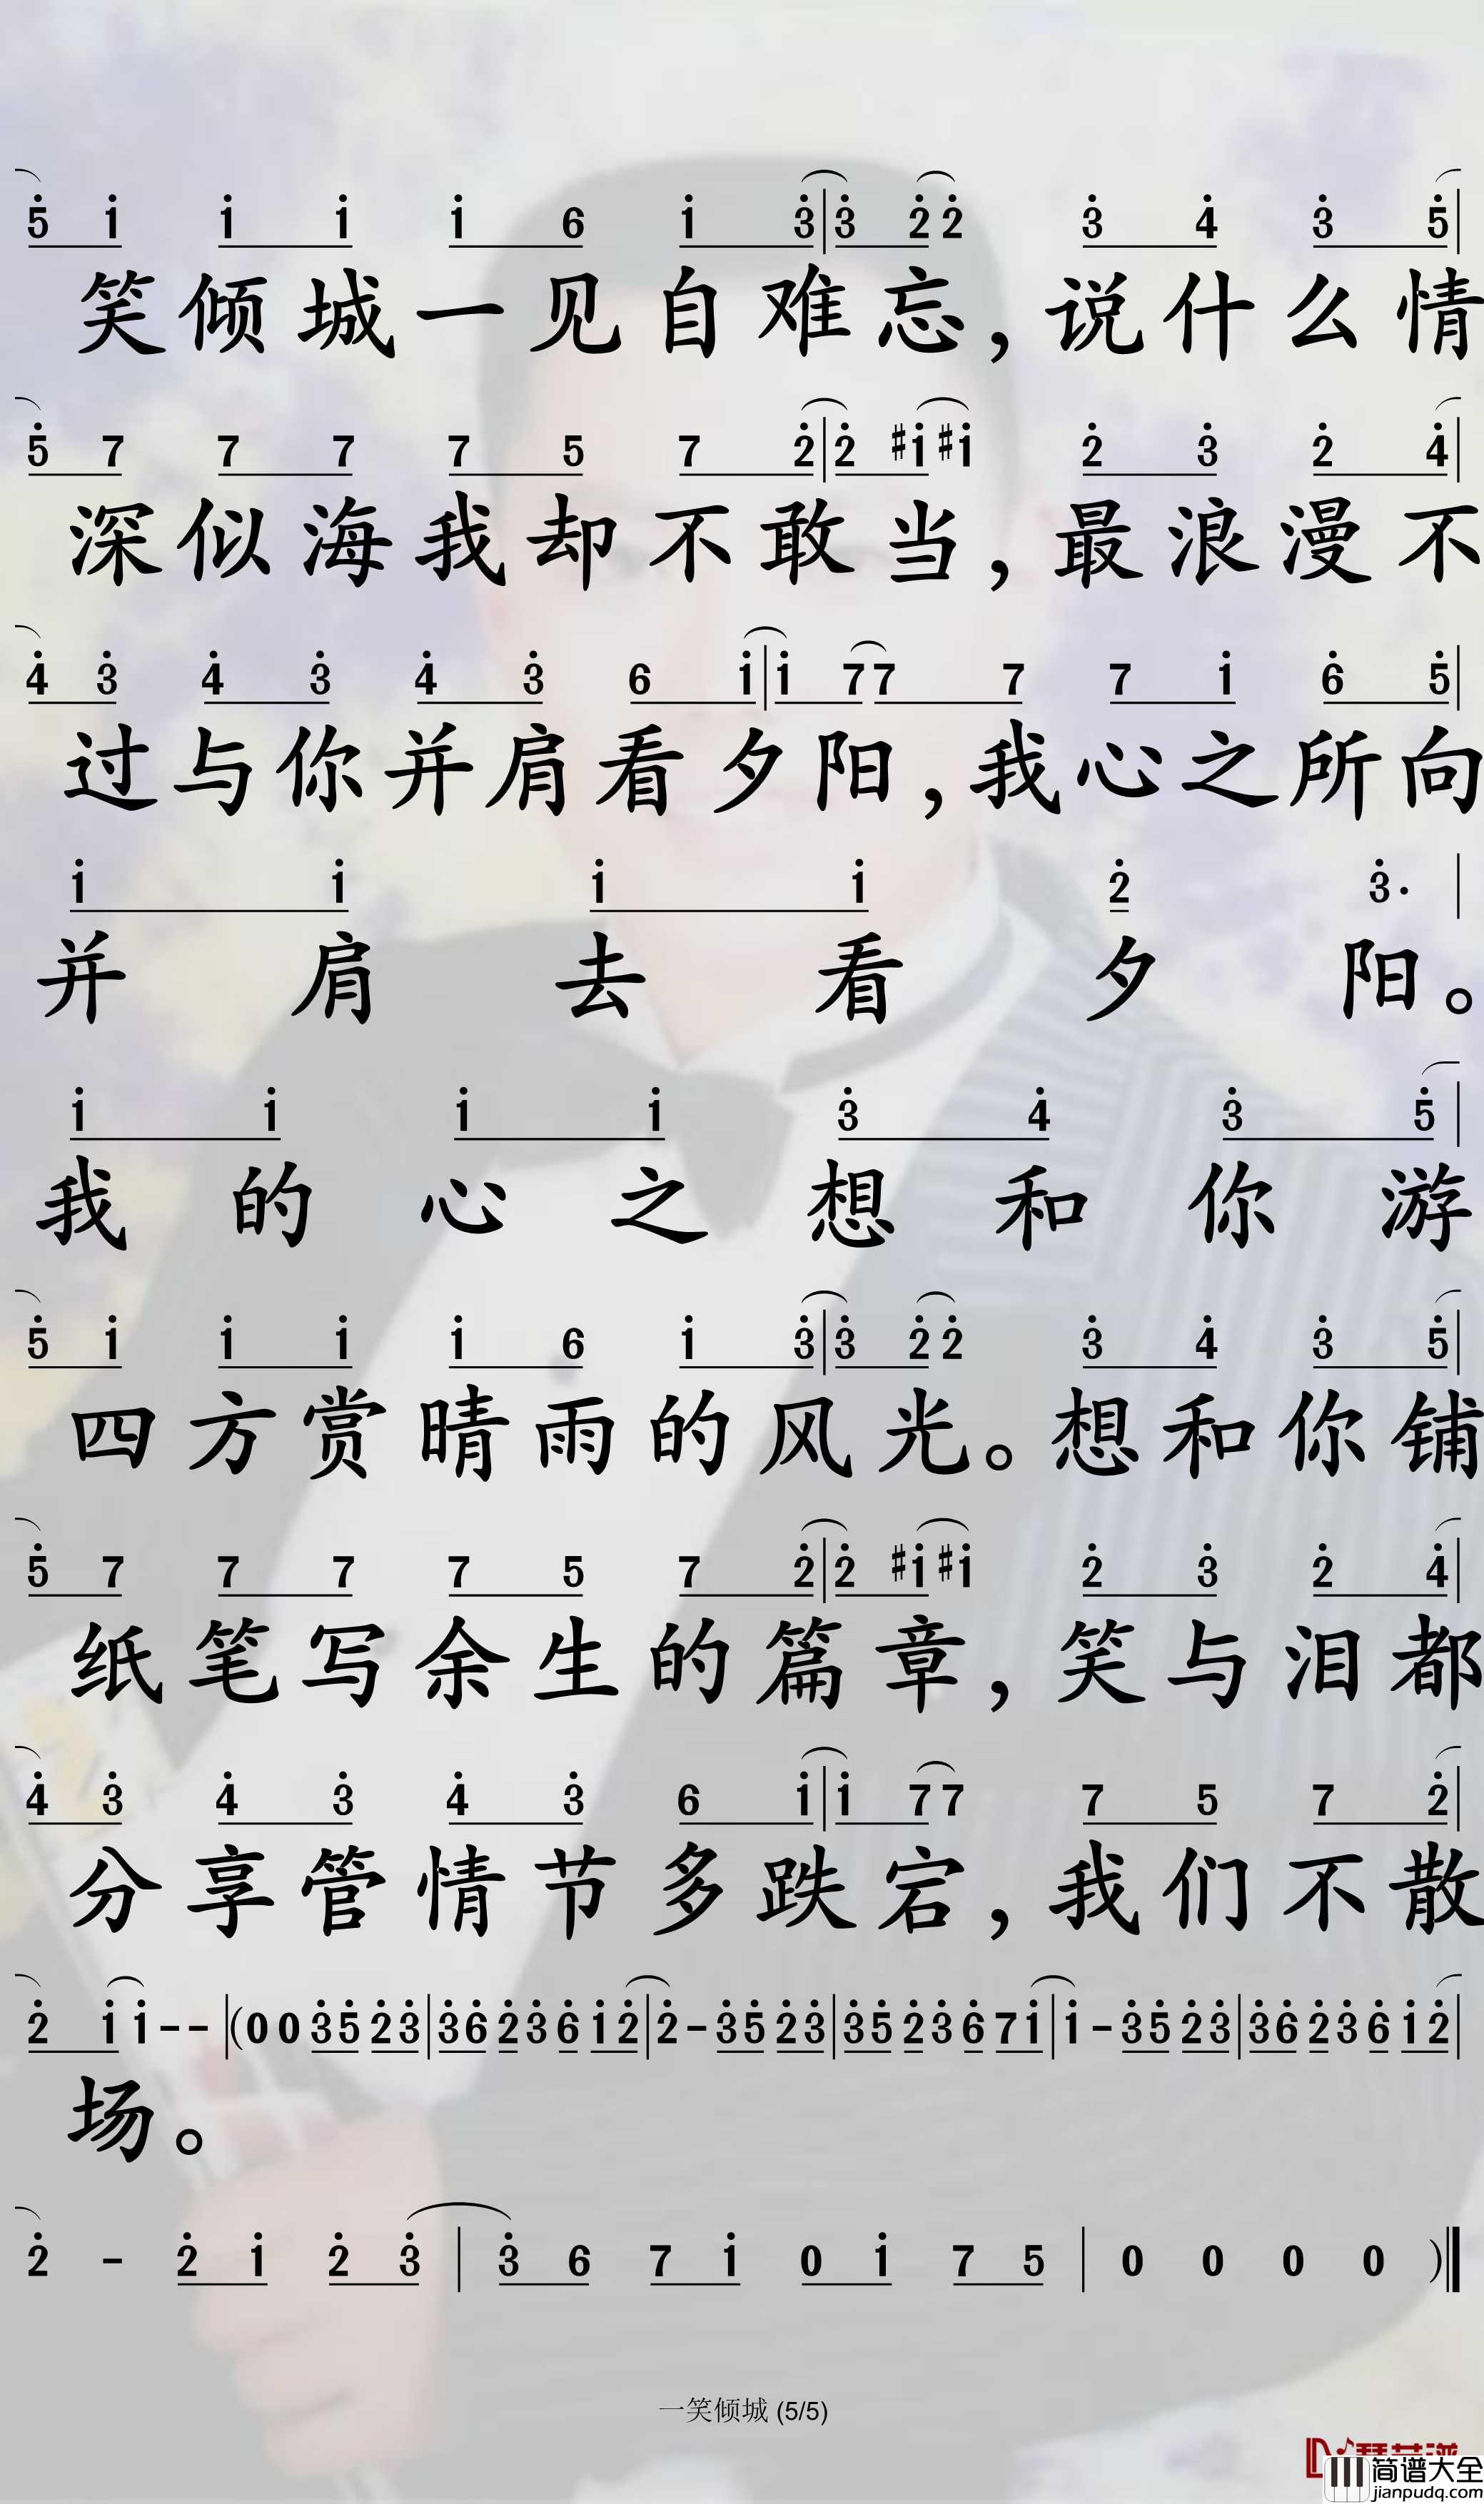 5 i i i i 6 i 3 | 3 2 2 3 4 3 5 |
笑倾城一见自难忘，说什么情
5 7 7 7 7 5 7 2 | 2 #i #i 2 3 2 4 |
深似海我却不敢当，最浪漫不
4 3 4 3 4 3 6 i | i 7 7 7 7 i 6 5 |
过与你并肩看夕阳，我心之所向
i i i i 2 3· |
并肩去看夕阳。
i i i i 3 4 3 5 |
我的心之想和你游
5 i i i i 6 i 3 | 3 2 2 3 4 3 5 |
四方赏晴雨的风光。想和你铺
5 7 7 7 7 5 7 2 | 2 #i #i 2 3 2 4 |
纸笔写余生的篇章，笑与泪都
4 3 4 3 4 3 6 i | i 7 7 7 5 7 2 |
分享管情节多跌宕，我们不散
2 i i - - | (0 0 3 5 2 3 | 3 6 2 3 6 i 2 | 2 - 3 5 2 3 | 3 5 2 3 6 7 i | i - 3 5 2 3 | 3 6 2 3 6 i 2 |
场。
2 - 2 i 2 3 | 3 6 7 i 0 i 7 5 | 0 0 0 0 )
一笑倾城 (5/5)
简谱大全
jianpudq.com